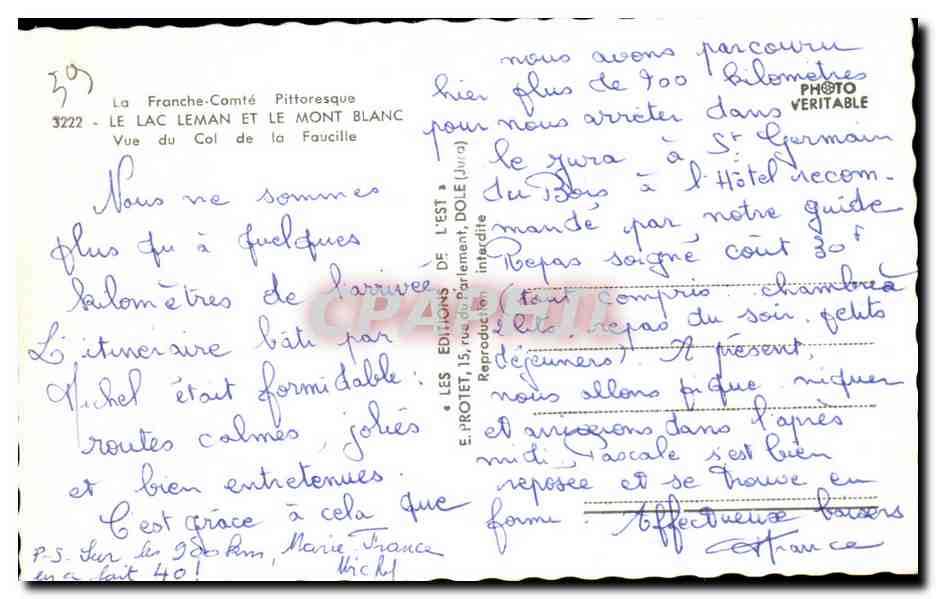 59
La Franche-Comté Pittoresque
3222 - LE LAC LEMAN ET LE MONT BLANC
Vue du Col de la Faucille
Nous ne sommes
plus qu'à quelques
kilomètres de l'arrivée
L'itinéraire bâti par
Michel était formidable :
routes calmes, jolies
et bien entretenues.
C'est grâce à cela que
nous avons parcouru
hier plus de 900 kilomètres
pour nous arrêter dans
le Jura à St Germain
du Bois à l'Hôtel recom-
mandé par notre guide
Repas soigné coût 30F
(tout compris chambre à
2 lits, repas du soir, petits
déjeuners). A présent,
nous allons pique-niquer
et arriverons dans l'après
midi. Pascale s'est bien
reposée et se trouve en
forme. Affectueux baisers
Marie-France
Michel
P-S. Sur les 900 km,
en a fait 40 !
PHOTO
VERITABLE
« LES EDITIONS DE L'EST »
E. PROTET, 15, rue du Parlement, DOLE (Jura)
Reproduction interdite
CPARAMA